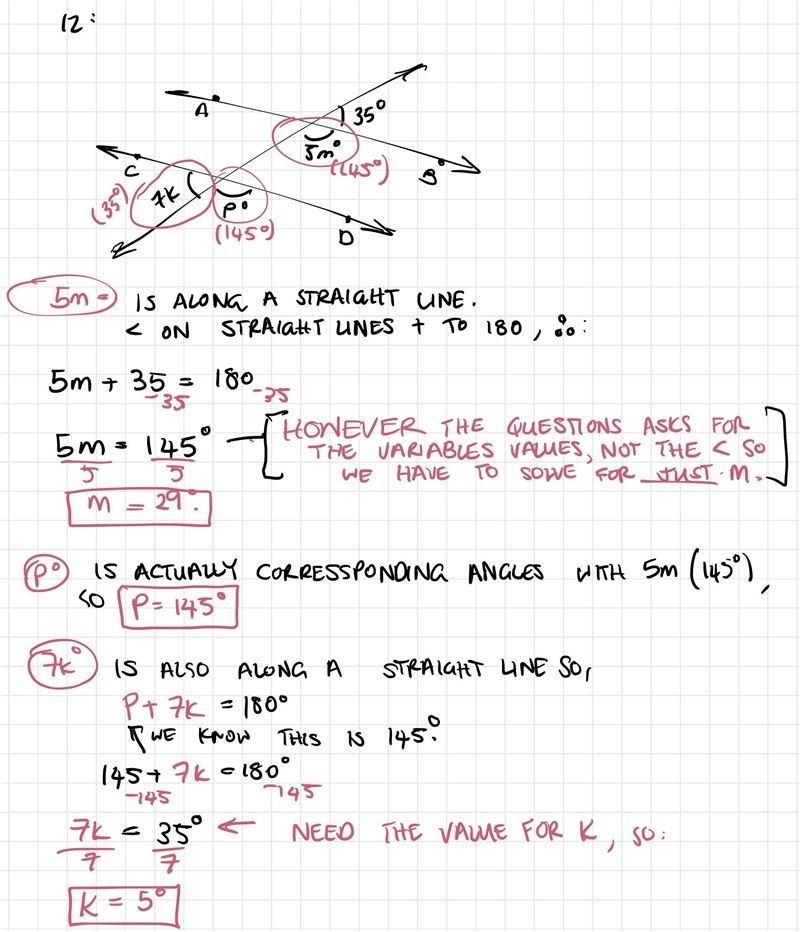 12:
A
35°
5m°
(145°)
B
C
(35°)
7K
P°
(145°)
D
5m = IS ALONG A STRAIGHT LINE.
< ON STRAIGHT LINES + TO 180, ∴:
5m + 35 = 180
-35 -35
5m = 145°
5 5
[HOWEVER THE QUESTIONS ASKS FOR
THE VARIABLES VALUES, NOT THE < SO
WE HAVE TO SOLVE FOR JUST M.]
m = 29°.
P° IS ACTUALLY CORRESSPONDING ANGLES WITH 5m (145°),
SO P = 145°
7K° IS ALSO ALONG A STRAIGHT LINE SO,
P + 7K = 180°
↑ WE KNOW THIS IS 145°.
145 + 7K = 180°
-145 -145
7K = 35° ← NEED THE VALUE FOR K, SO:
7 7
K = 5°